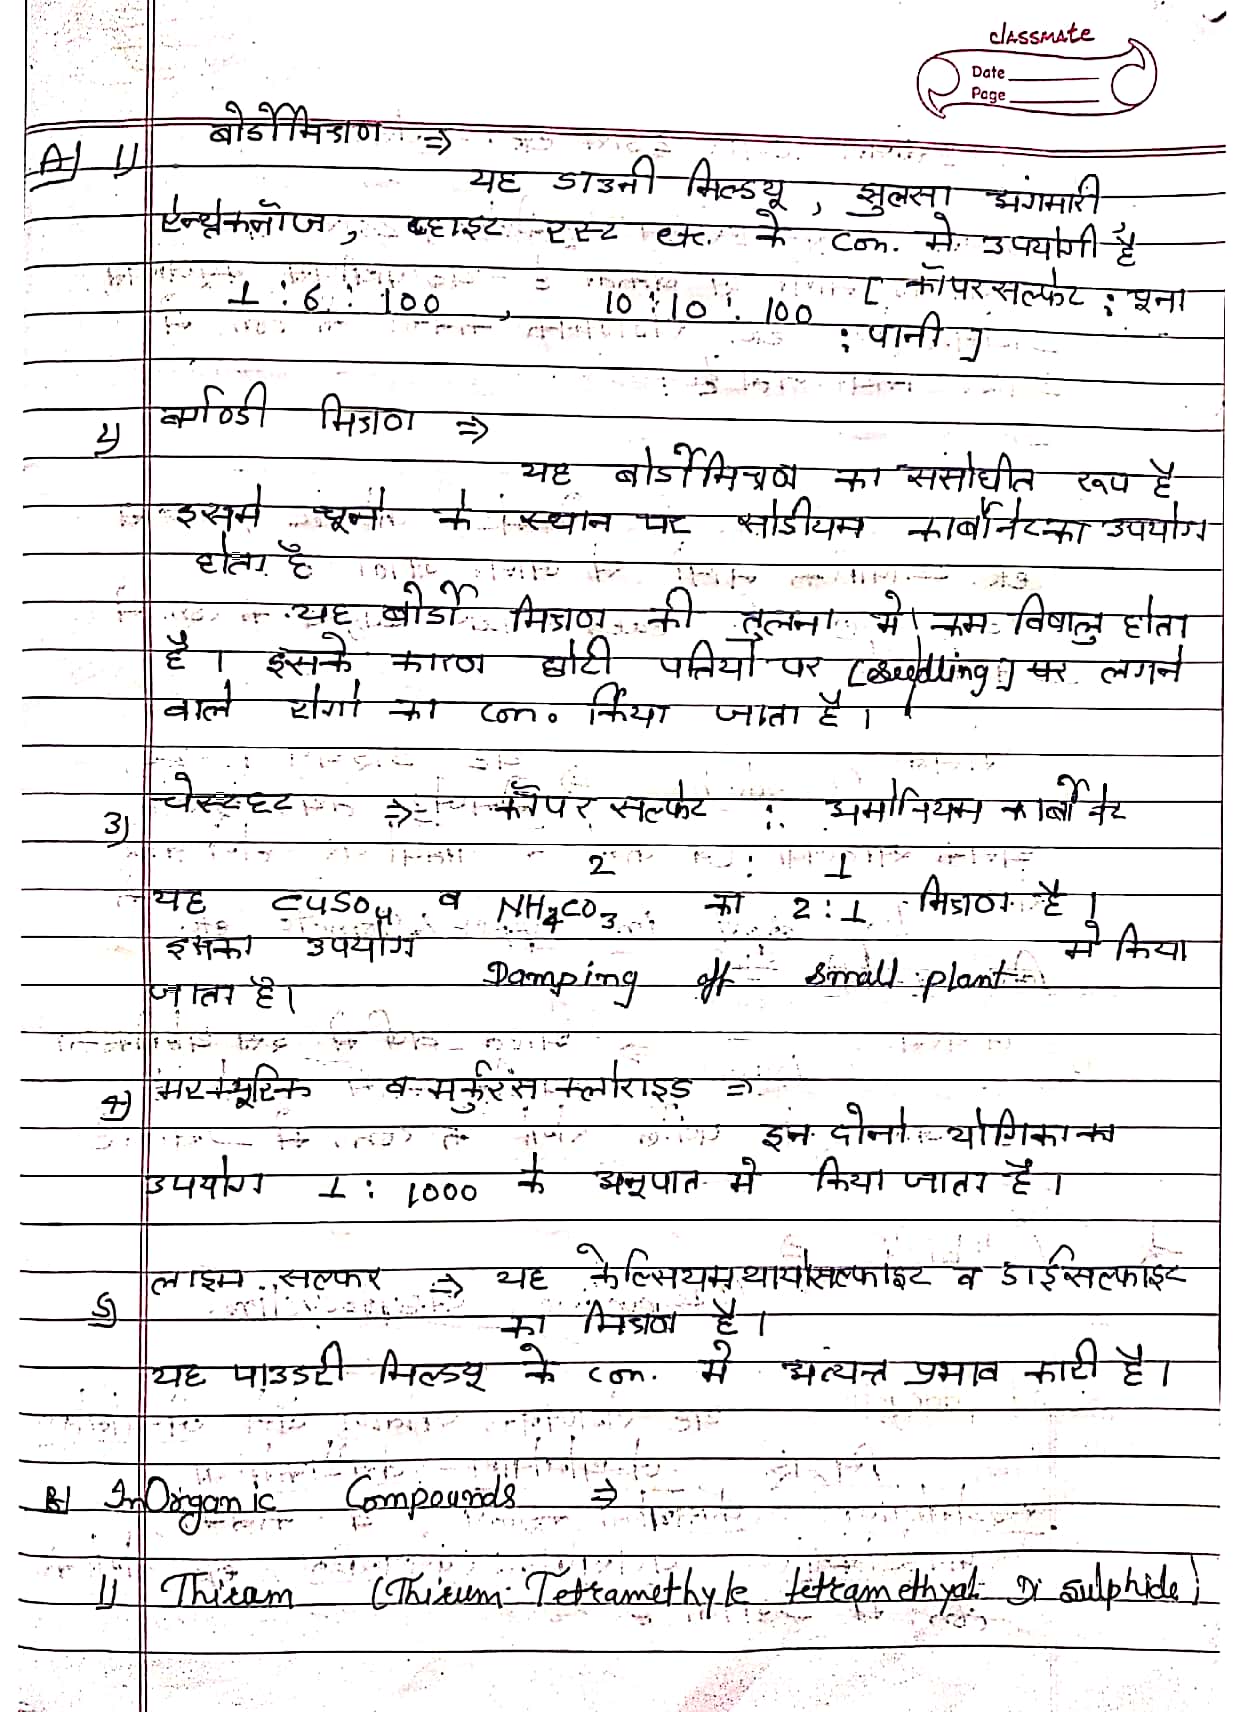 classmate
Date
Page
बोर्डोमिश्रण ⇒
A) 1) यह डाउनी मिल्डयू, झुलसा अंगमारी
ऐन्थ्रेकनॉज, व्हाइट रस्ट etc. के con. मे उपयोगी है
1 : 6 : 100 , 10 : 10 : 100 [ कॉपरसल्फेट : चूना
: पानी ]
2) बर्गण्डी मिश्रण ⇒
यह बोर्डोमिश्रण का संसोधीत रूप है
इसमे चूने के स्थान पर सोडीयम कार्बोनेट का उपयोग
होता है
यह बोर्डो मिश्रण की तुलना मे कम विषालु होता
है । इसके कारण छोटी पतियों पर [seedling] पर लगने
वाले रोगो का con. किया जाता है ।
3) चेस्टहट ⇒ कॉपर सल्फेट : अमोनियम कार्बोनेट
2 : 1
यह CuSO4 व NH4CO3 का 2:1 मिश्रण है ।
इसका उपयोग Damping off small plant मे किया
जाता है ।
4) मरक्यूरिक व मर्कुरस क्लोराइड ⇒
इन दोनो योगिका का
उपयोग 1 : 1000 के अनुपात मे किया जाता है ।
5) लाइम सल्फर ⇒ यह केल्सियम थायोसल्फाइट व डाईसल्फाइट
का मिश्रण है ।
यह पाउडरी मिल्डयू के con. मे अत्यन्त प्रभाव कारी है ।
B) InOrganic Compounds ⇒
1) Thiram (Thirum Tetramethyle tetramethyal Di sulphide)